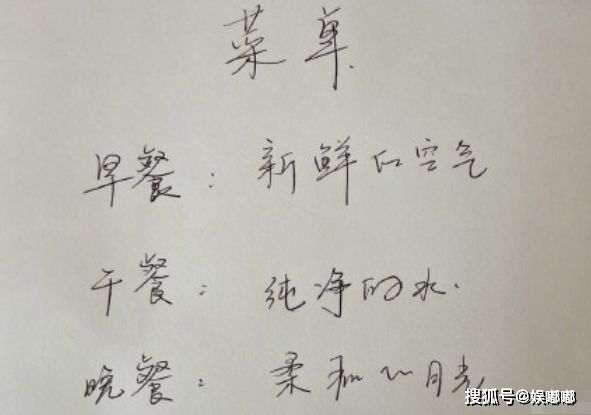 菜单
早餐：新鲜的空气
午餐：纯净的水.
晚餐：柔和的月光
搜狐号@娱嘟嘟